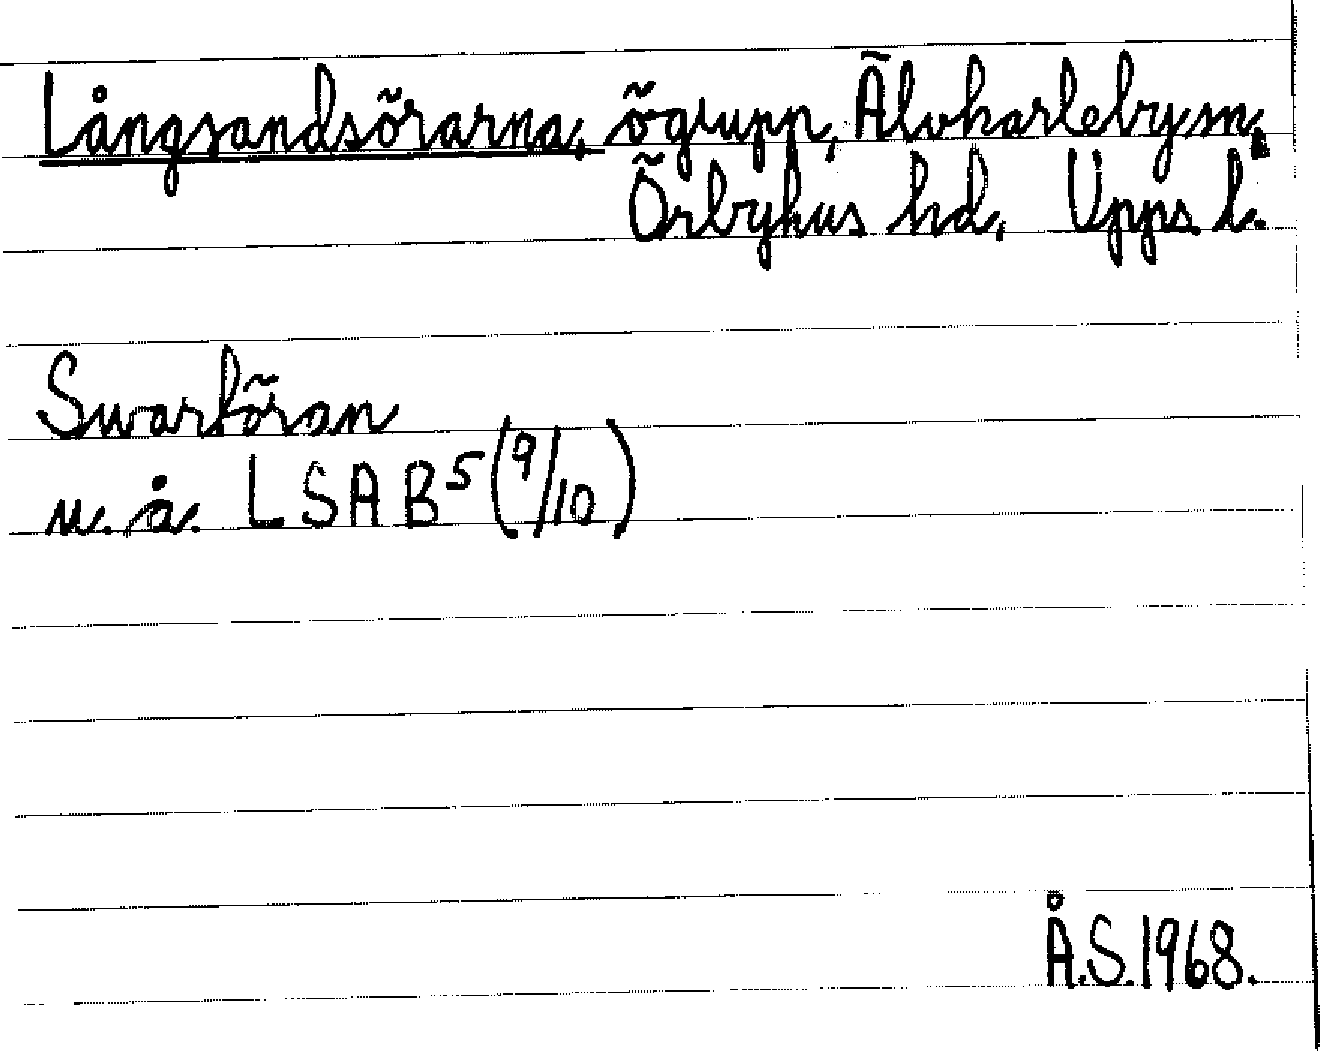 Långsandsörarna, ögrupp, Älvkarleby sn,
Örbyhus hd, Upps. l.
Swartöran
u.å. LSA B⁵ (9/10)
Å.S. 1968.